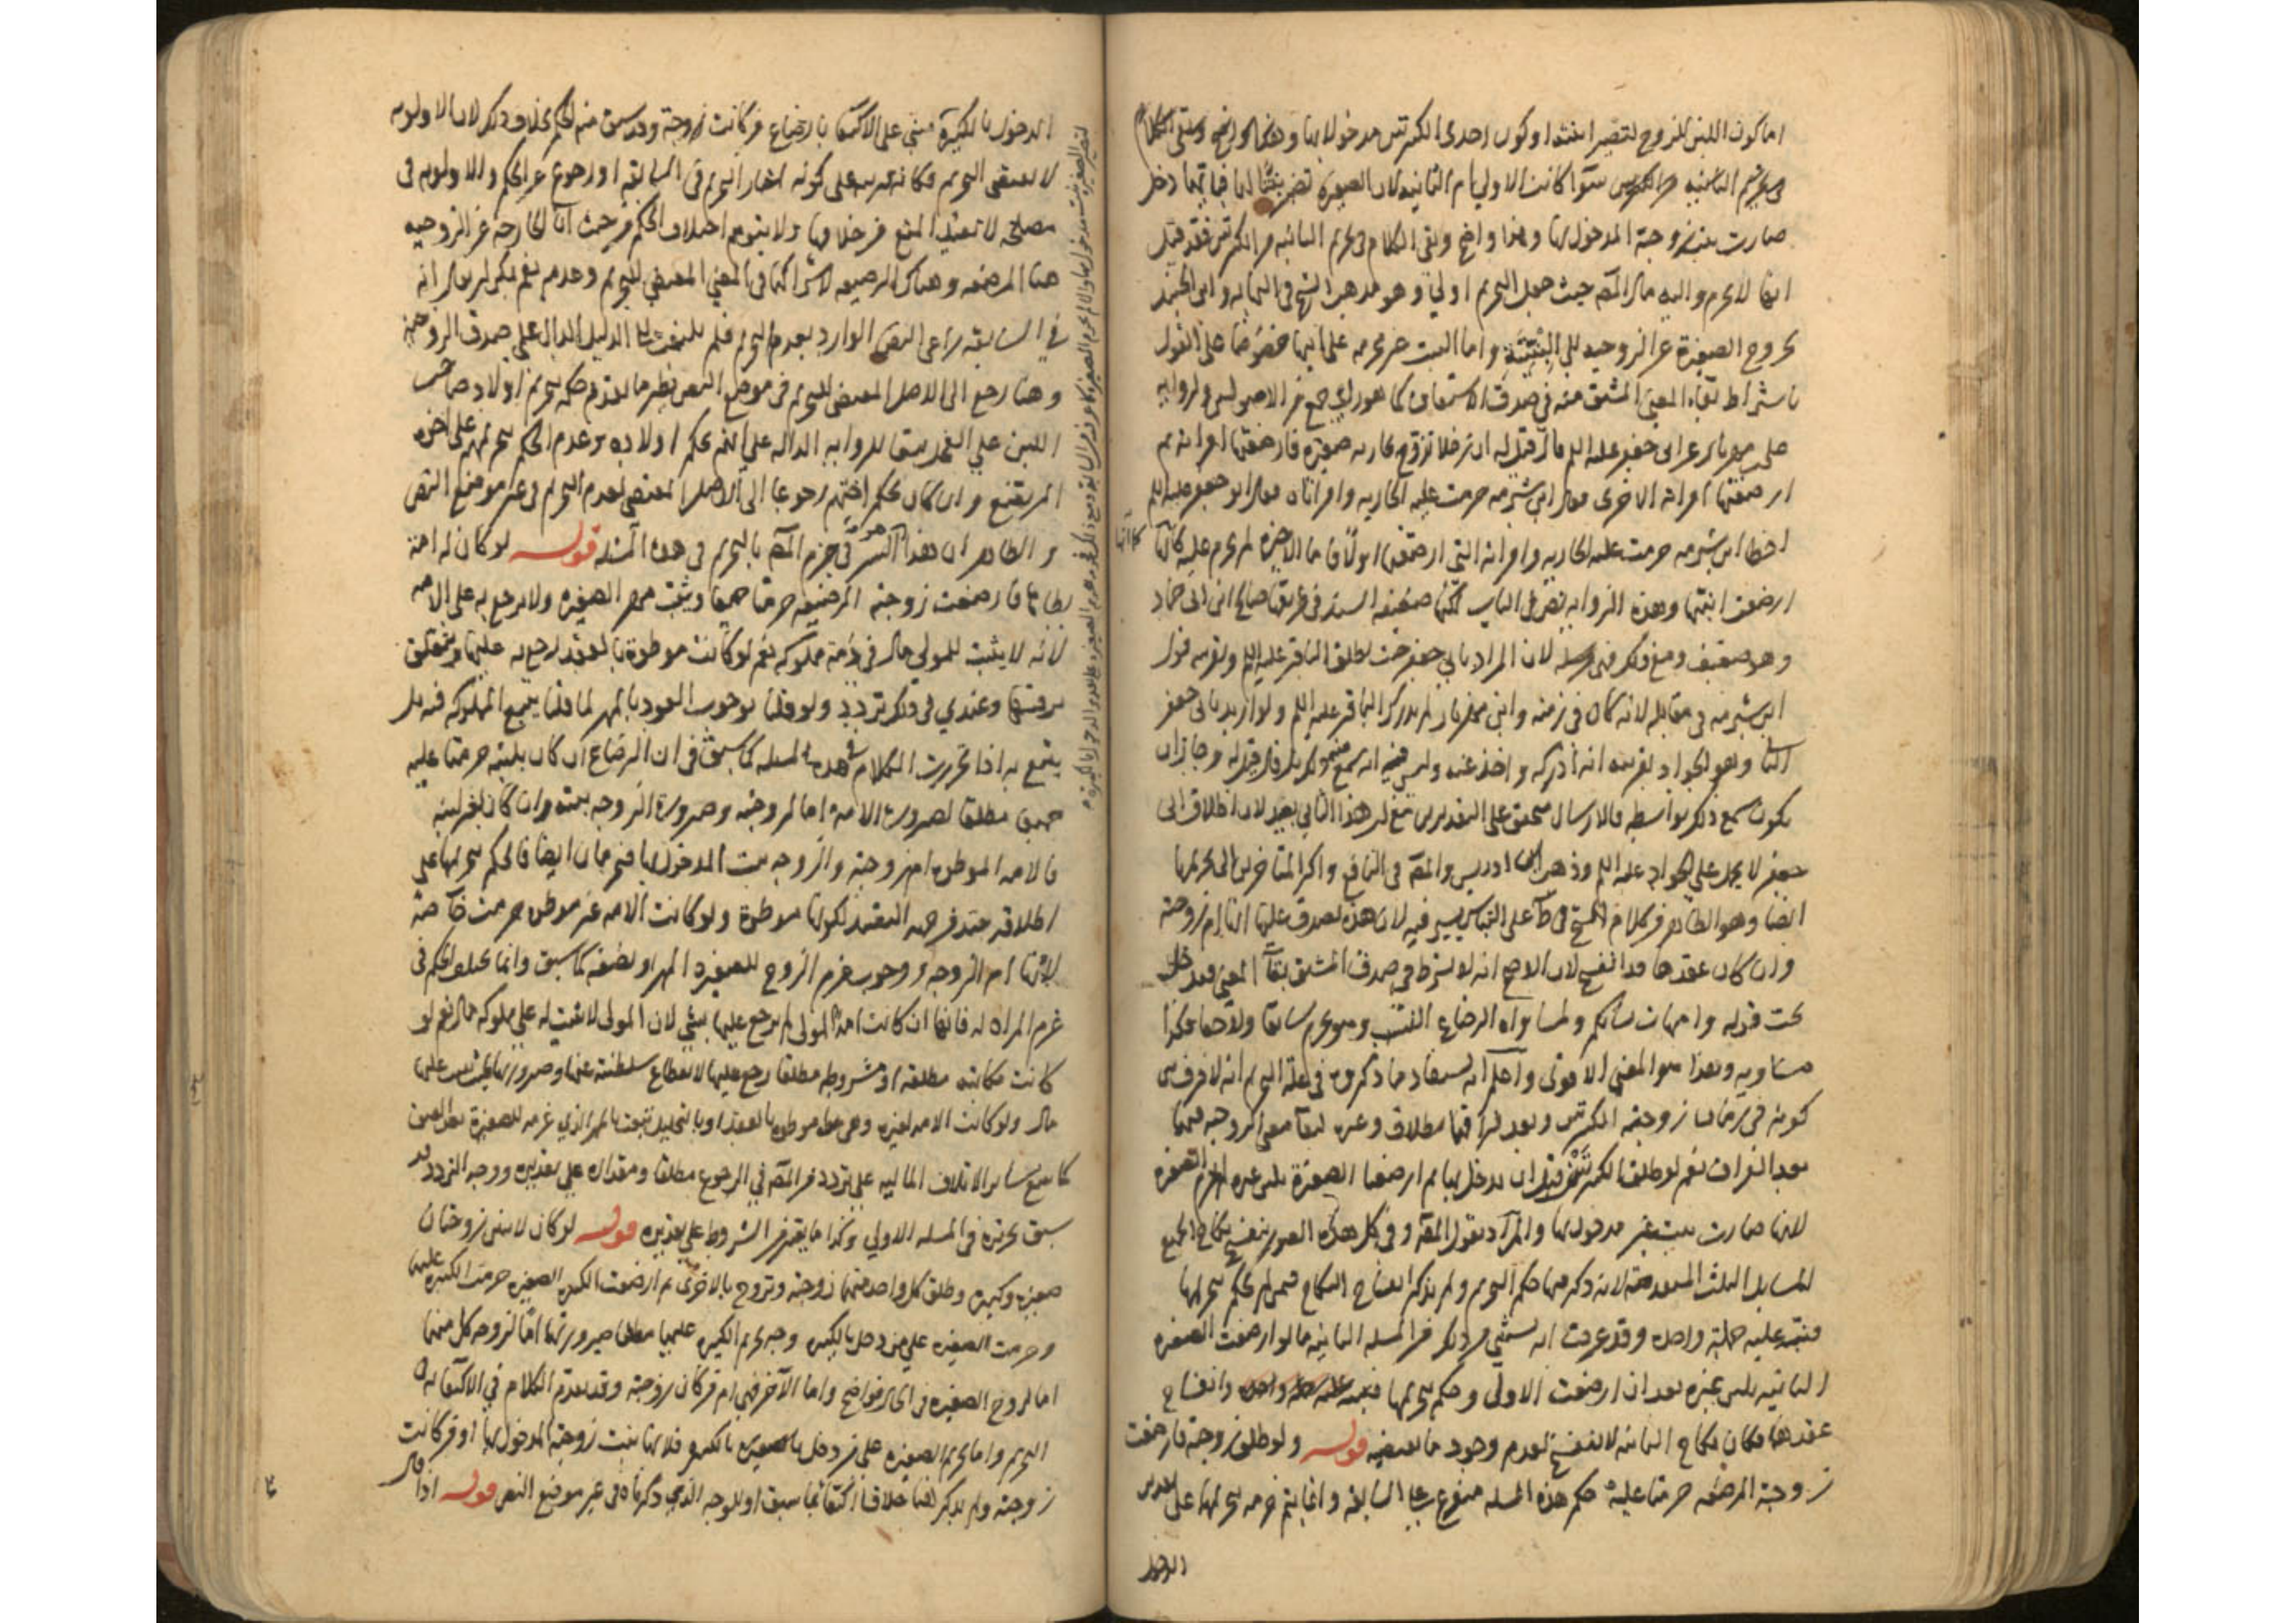 اما كون اللبن للزوج لتصير ابنته او كون احدى الكبيرتين مدخولا بها وهذا واضح وبقي الكلام
في تحريم الثانية من الكبيرتين سوآ كانت الاولي ام الثانيه لان الصغيرة تصير بنتا لها فايتهما دخل
صارت بنت زوجته المدخول بها وهذا واضح وبقى الكلام في تحريم الثانيه من الكبيرتين فقد قيل
انها لا تحرم واليه مال المصَ حيث جعل التحريم اولي وهو مذهب الشيخ في النهايه وابن الجنيد
لخروج الصغيرة عن الزوجيه الى البنتيّة واما البنت غير محرمه على ابيها خصوصا على القول
باشتراط بقاء المعنى المشتق منه في صدق الاشتقاق كما هو راي جمع من الاصوليين ولروايه
على بن مهزيار عن ابى جعفر عليه السلم قال قيل له ان رجلا تزوج بجاريه صغيره فارضعتها امراته ثم
ارضعتها امراته الاخرى فقال ابن شبرمه حرمت عليه الجاريه وامراتاه فقال ابو جعفر عليه السلم
اخطا ابن شبرمه حرمت عليه الجاريه وامراته التى ارضعتها اولاً فاما الاخيرة لم تحرم عليه كانها
ارضعت ابنتها وهذه الروايه نص في الباب لكنها ضعيفه السند في طريقها صالح ابن ابى حماد
وهو ضعيف ومع ذلك فهى مرسله لان المراد بابي جعفر حيث يطلق الباقر عليه السلم وبقرينه قول
ابن شبرمه في مقابله لانه كان في زمنه وابن مهزيار لم يدرك الباقر عليه السلم ولو اريد بابى جعفر
الثانى وهو الجواد بقرينه انه ادركه واخذ عنه وليس فيه انه سمع منه ذلك بل قال قيل له وجاز ان
يكون سمع ذلك بواسطه فالارسال متحقق على التقديرين مع ان هذا الثاني بعيد لان اطلاق ابى
جعفر لا يحمل على الجواد عليه السلم وذهب ابن ادريس والمصَ في النافع واكثر المتاخرين الى تحريمها
ايضا وهو الظاهر من كلام الشيخ في طَ على التباس يسير فيه لان هذه يصدق عليها انها ام زوجته
وان كان عقدها قد انفسخ لان الاصح انه لا يشترط في صدق المشتق بقآ المعنى فتدخل
تحت قوله وامهات نسائكم ولمساواه الرضاع النسب وهو يحرم سابقا ولاحقا فكذا
مساويه وهذا هو المعنى الاقوى واعلم انه يستفاد مما ذكروه في علة التحريم انه لا فرق بين
كونه في رضاعها زوجته الكبيرتين وبعد فراقهما بطلاق وغيره لبقآ معنى الزوجيه فيهما
بعد الفراق نعم لو طلق الكبيرتين قبل ان يدخل بهما ثم ارضعتا الصغيرة بلبن غيره لم تحرم الصغيره
لانها صارت بنت غير مدخول بها والمراد بقول المصَ وفي كل هذه الصور ينفسخ نكاح الجميع
المسايل الثلث المتقدمة لانه ذكر فيها حكم التحريم ولم يذكر انفساخ النكاح فيمن لم يحكم بتحريمها
فنبه عليه جملة واحده وقد عرفت انه يستثنى من ذلك من المسله الثانيه ما لو ارضعت الصغيره
الثانيه بلبن غيره بعد ان ارضعت الاولى وحكم بتحريمها وانفساخ
عقدها فكان نكاح الثانيه لا ينفسخ لعدم وجود ما يقتضيه قوله ولو طلق زوجته فارضعت
زوجته الرضيعه حرمتا عليه حكم هذه المسله متفرع على السابقه وانما يتم حرمه تحريمها على تقدير
الدخول
الدخول بالكبيرة مبني على الاكتفا بارضاع من كانت زوجته وقد سبق منه الحكم بخلاف ذلك لان الاولويه
لا تقتضى التحريم فكانه بنى على كونه اختار التحريم فى السابقه او رجوع عن الحكم والاولويه فى
مصلحه لا تفيد المنع من خلافها ولا يتوهم اختلاف الحكم من حيث ان الخارجه عن الزوجيه
هنا المرضعه وهناك الرضيعه لاشتراكهما فى المعنى المقتضي للتحريم وعدمه نعم يمكن ان يقال انه
في السابقه راعى النص الوارد بعدم التحريم فلم يلتفت الى الدليل الدال على صدق الزوجية
وهنا رجع الى الاصل المقتضى للتحريم فى غير موضع النص نظير ما تقدم من حكمه بتحريم اولاد صاحب
اللبن علي الفحل سبقا للروايه الداله على انهم بحكم اولاده وعدم الحكم بتحريمهم على اخوه
المرتضع وان كان بحكم اختهم رجوعا الى الاصل المقتضى لعدم التحريم فى غير موضع النص
والظاهر ان هذا هو السر في جزم المصَ بالتحريم فى هذه المسله قوله لو كان له امة
يطاها فارضعت زوجته الرضيعه حرمتا جميعا ويثبت مهر الصغيره ولا يرجع به على الامه
لانه لا يثبت للمولي مال في ذمة مملوكه نعم لو كانت موطوة بالعقد يرجع به عليها ويتعلق
برقبتها وعندي فى ذلك تردد ولو قلنا بوجوب العود بالمهر لما قلنا ببيع المملوكه فيه بل
يتبع به اذا تحررت الكلام في هذه المسله كما سبق فى ان الرضاع ان كان بلبنه حرمتا عليه
جميعا مطلقا لصيرورة الامة اما لزوجته وصيرورة الزوجه بنته وان كان لغير لبنه
فالامه الموطوه ام زوجته والزوجه بنت المدخول بها فتحرمان ايضا فالحكم بتحريمها على
اطلاقه جيد من جهه التقييد لكونها موطوة ولو كانت الامه غير موطوه حرمت خاصة
لانها ام الزوجه ووجوب غرم الزوج للصغيره المهر او نصفه كما سبق وانما يختلف الحكم فى
غرم المراه له فانها ان كانت امة المولى لم يرجع عليها بشى لان المولى لا يثبت له على مملوكه مال نعم لو
كانت مكاتبه مطلقه او مشروطه مطلقا رجع عليها لانقطاع سلطنته عنها وصيرورتها بحيث يثبت عليها
مال ولو كانت الامه لغيره وهى موطوه بالعقد او بالتحليل تبعت بالمهر الذي غرمه للصغيرة
كما يتبع ساير الاتلاف الماليه على تردد من المصَ في الرجوع مطلقا ومقداره علي تقديره ووجه التردد قد
سبق تحريره فى المسله الاولي وكذا ما يعتبر من الشروط على تقديره قوله لو كان لاثنين زوجتان
صغيره وكبيره وطلق كل واحد منهما زوجته وتزوج بالاخرى ثم ارضعت الكبيره الصغيره حرمت الكبيره عليهما
وحرمت الصغيره علي من دخل بالكبيره وجه تحريم الكبيره عليهما مطلقا صيرورتها امّا لزوجه كل منهما
اما لزوج الصغيره فى الحال فواضح واما الآخر فهى ام من كان زوجته وقد تقدم الكلام في الاكتفا به
التحريم واما تحريم الصغيره على من دخل بالكبيره فلانها بنت زوجته المدخول بها او من كانت
زوجته ولم يذكر هنا خلافا اكتفآ بما سبق او للوجه الذى ذكرناه في غير موضع النص قوله اذا قال